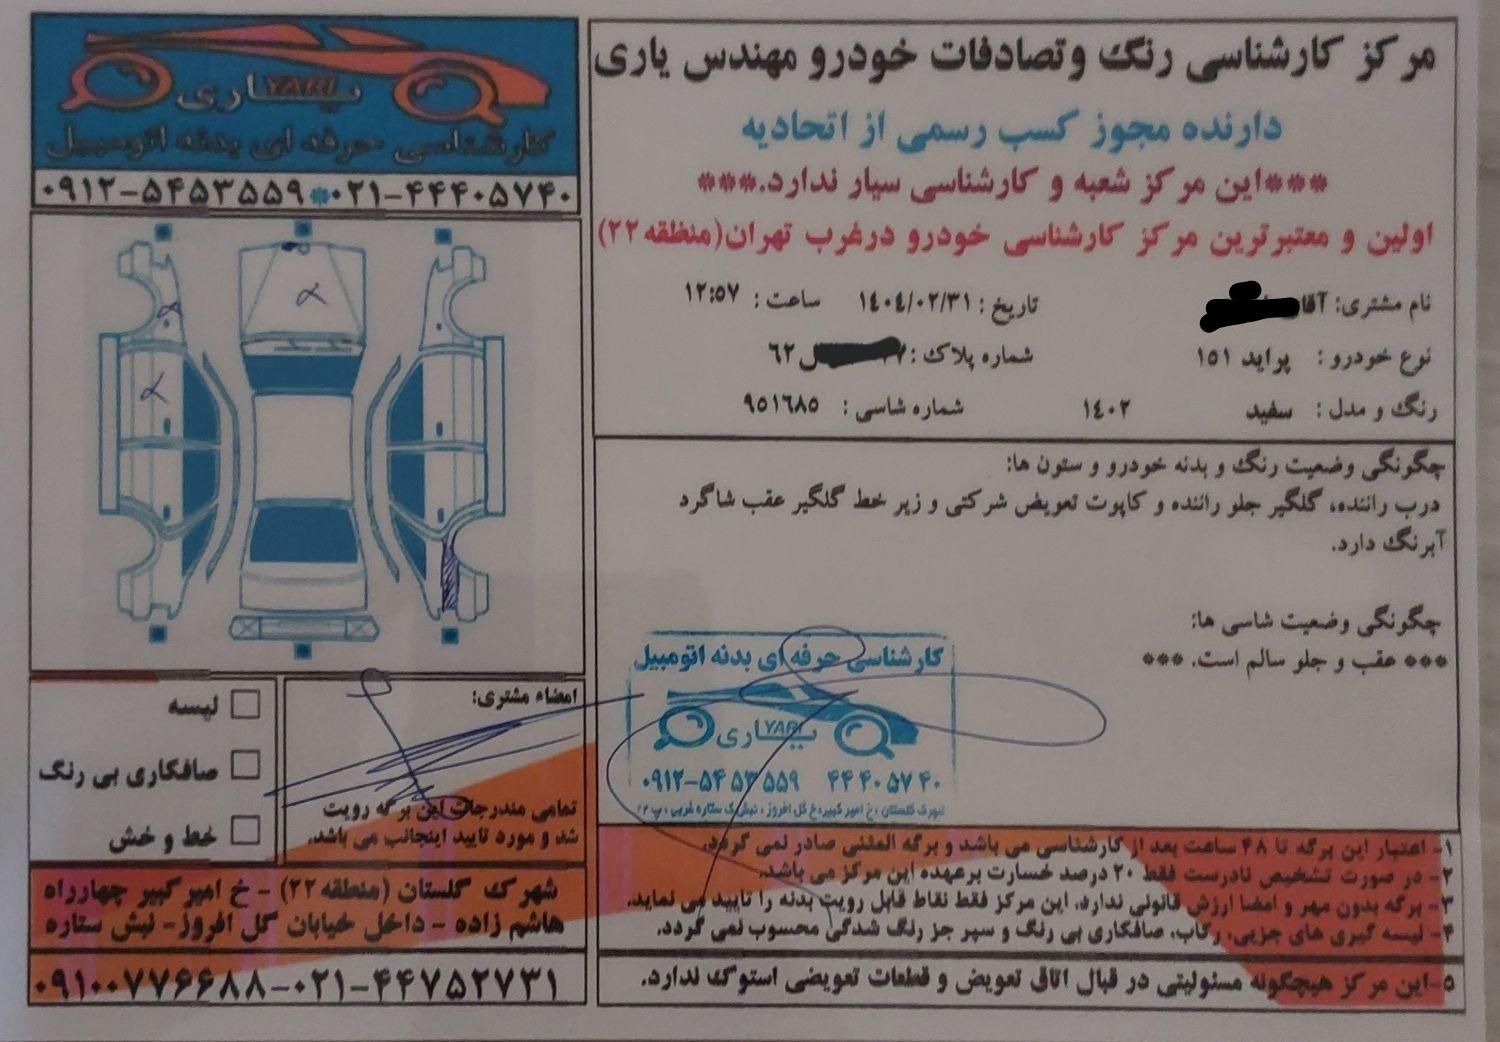 مرکز کارشناسی رنگ وتصادفات خودرو مهندس یاری
دارنده مجوز کسب رسمی از اتحادیه
***این مرکز شعبه و کارشناسی سیار ندارد.***
اولین و معتبرترین مرکز کارشناسی خودرو درغرب تهران(منطقه ۲۲)
نام مشتری: آقای
تاریخ : ۱۴۰۴/۰۲/۳۱ ساعت : ۱۲:۵۷
نوع خودرو : پراید ۱۵۱
شماره پلاک : ۶۲
رنگ و مدل : سفید ۱۴۰۲
شماره شاسی : ۹۵۱۶۸۵
چگونگی وضعیت رنگ و بدنه خودرو و ستون ها:
درب راننده، گلگیر جلو راننده و کاپوت تعویض شرکتی و زیر خط گلگیر عقب شاگرد
آبرنگ دارد.
چگونگی وضعیت شاسی ها:
*** عقب و جلو سالم است. ***
کارشناسی حرفه ای بدنه اتومبیل
یاری YARI
۰۹۱۲-۵۴۵۳۵۵۹ ۴۴۴۰۵۷۴۰
۱- اعتبار این برگه تا ۴۸ ساعت بعد از کارشناسی می باشد و برگه المثنی صادر نمی گردد.
۲- در صورت تشخیص نادرست فقط ۲۰ درصد خسارت برعهده این مرکز می باشد.
۳- برگه بدون مهر و امضا ارزش قانونی ندارد. این مرکز فقط نقاط قابل رویت بدنه را تایید می نماید.
۴- لیسه گیری های جزیی، رکاب، صافکاری بی رنگ و سپر جز رنگ شدگی محسوب نمی گردد.
۵-این مرکز هیچگونه مسئولیتی در قبال اتاق تعویض و قطعات تعویضی استوک ندارد.
یاری YARI
کارشناسی حرفه ای بدنه اتومبیل
۰۹۱۲-۵۴۵۳۵۵۹*۰۲۱-۴۴۴۰۵۷۴۰
امضاء مشتری:
تمامی مندرجات این برگه رویت
شد و مورد تایید اینجانب می باشد.
لیسه
صافکاری بی رنگ
خط و خش
شهرک گلستان (منطقه ۲۲) - خ امیرکبیر چهارراه
هاشم زاده - داخل خیابان گل افروز- نبش ستاره
۰۹۱۰۰۷۷۶۶۸۸-۰۲۱-۴۴۷۵۲۷۳۱